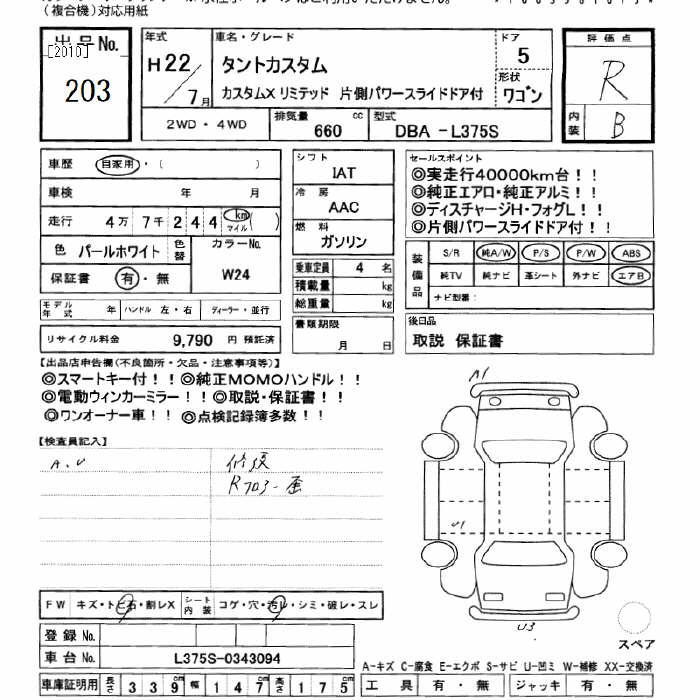 (複合機)対応用紙
出品No.
[2010]
203
年式
H22/7月
車名・グレード
タントカスタム
カスタムX リミテッド 片側パワースライドドア付
ドア
5
形状
ワゴン
評価点
R
内装
B
2WD・4WD
排気量
660 cc
型式
DBA-L375S
車歴 自家用・( )
車検 年 月
走行 4万7千244 km マイル ( )
色 パールホワイト 色替
カラーNo.
W24
保証書 有・無
モデル年式 年 ハンドル 左・右 ディーラー・並行
リサイクル料金 9,790 円 預託済
シフト
IAT
冷房
AAC
燃料
ガソリン
乗車定員 4 名
積載量 kg
総重量 kg
書類期限
月 日
セールスポイント
◎実走行40000km台!!
◎純正エアロ・純正アルミ!!
◎ディスチャージH・フォグL!!
◎片側パワースライドドア付!!
装備品
S/R 純A/W P/S P/W ABS
純TV 純ナビ 革シート 外ナビ エアB
ナビ型番:
後日品
取説 保証書
【出品店申告欄(不良箇所・欠品・注意事項等)】
◎スマートキー付!!◎純正MOMOハンドル!!
◎電動ウィンカーミラー!!◎取説・保証書!!
◎ワンオーナー車!!◎点検記録簿多数!!
【検査員記入】
A.U 修復
A1
U1
U3
スペア
FW キズ・トビ石・割レX
シート内装 コゲ・穴・汚レ・シミ・破レ・スレ
登録No.
車台No. L375S-0343094
車庫証明用 長さ 339cm 幅 147cm 高さ 175cm
A-キズ C-腐食 E-エクボ S-サビ U-凹ミ W-補修 XX-交換済
工具 有・無 ジャッキ 有・無